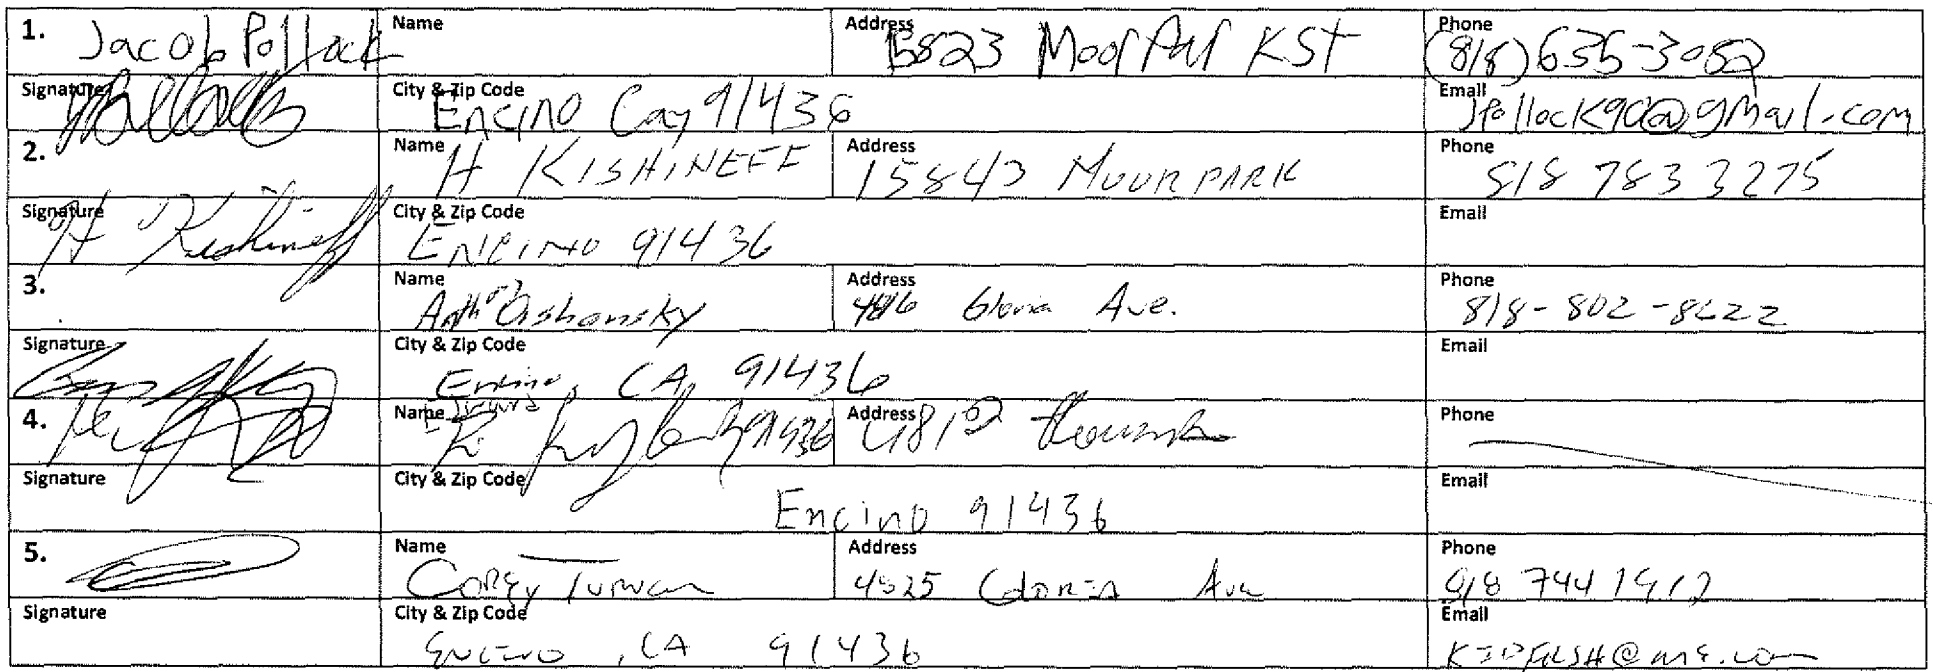 1. Jacob Pollack Name Address 15823 Moorpark St Phone (818) 635-3082
Signature City & Zip Code Encino Cay 91436 Email Jpollock90@gmail.com
2. Name H KISHINEFF Address 15843 MOORPARK Phone 818 783 3275
Signature H Kishineff City & Zip Code ENCINO 91436 Email
3. Name Address Gloria Ave. Phone 818-802-8622
Signature City & Zip Code Encino, CA, 91436 Email
4. Name 91436 Address Phone
Signature City & Zip Code Encino 91436 Email
5. Name Corey Address 4825 Gloria Ave Phone 818 744 1912
Signature City & Zip Code Encino, CA 91436 Email